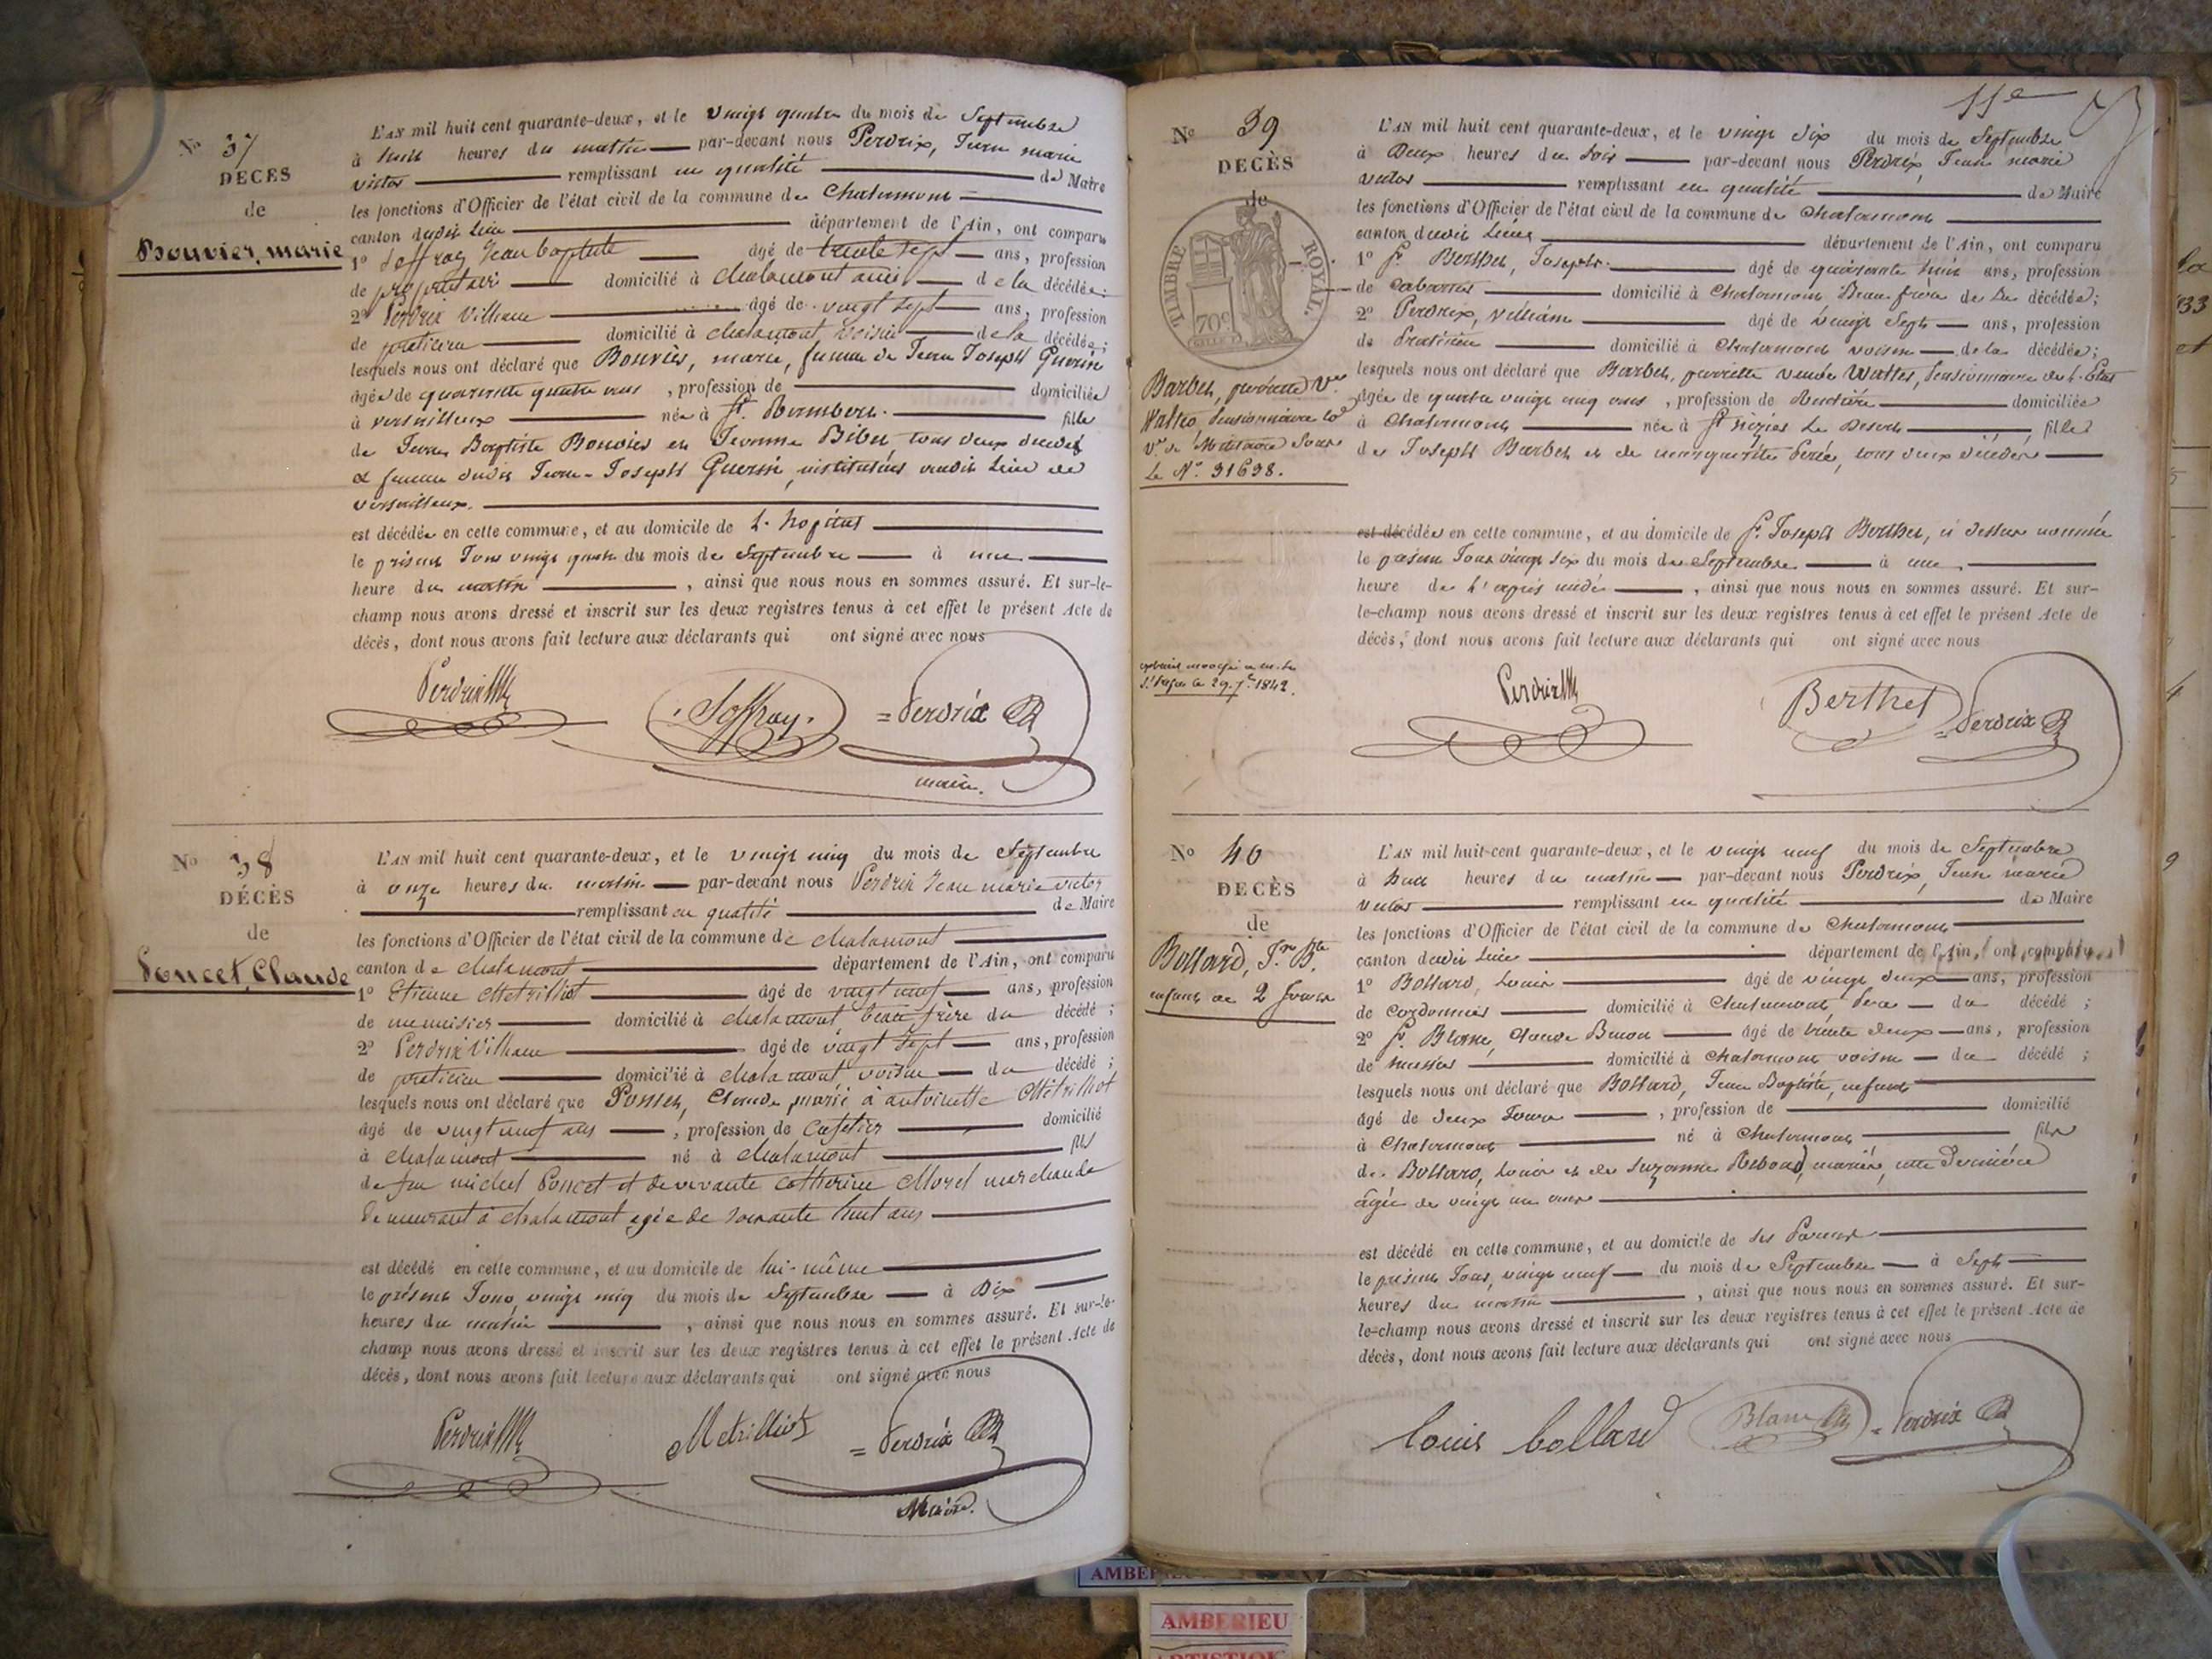 Nº 37
DÉCÈS
de
Bouvier, marie
L'AN mil huit cent quarante-deux, et le vingt quatre du mois de Septembre
à huit heures du matin par-devant nous Perdrix, Jean marie
victor remplissant en qualité de Maire
les fonctions d'Officier de l'état civil de la commune de Chalamont
canton dudit lieu département de l'Ain, ont comparu
1º Joffray Jean baptiste âgé de trente sept ans, profession
de propriétaire domicilié à chalamont ami de la décédée;
2º Perdrix Vilhem âgé de vingt sept ans, profession
de praticien domicilié à chalamont voisin de la décédée;
lesquels nous ont déclaré que Bouvier, marie, femme de Jean Joseph Guerin
âgée de quarante quatre ans, profession de domiciliée
à versailleux née à St. Rambert. fille
de Jean Baptiste Bouvier et Jeanne Bibet tous deux décédés
& femme dudit Jean-Joseph Guerin, instituteur audit lieu de
versailleux.
est décédée en cette commune, et au domicile de L'hopital
le présent Jour vingt quatre du mois de Septembre à une
heure du matin, ainsi que nous nous en sommes assuré. Et sur-le-
champ nous avons dressé et inscrit sur les deux registres tenus à cet effet le présent Acte de
décès, dont nous avons fait lecture aux déclarants qui ont signé avec nous
Perdrix
Joffray
Perdrix
maire.
Nº 38
DÉCÈS
de
Poncet, Claude
L'AN mil huit cent quarante-deux, et le vingt cinq du mois de Septembre
à onze heures du matin par-devant nous Perdrix Jean marie victor
remplissant en qualité de Maire
les fonctions d'Officier de l'état civil de la commune de chalamont
canton de chalamont département de l'Ain, ont comparu
1º Etienne Metrilliot âgé de vingt neuf ans, profession
de menuisier domicilié à chalamont beau frère du décédé;
2º Perdrix Vilhem âgé de vingt sept ans, profession
de praticien domicilié à chalamont, voisin du décédé;
lesquels nous ont déclaré que Poncet, Claude, marié à antoinette Metrilliot
âgé de vingt neuf ans, profession de Cafetier domicilié
à chalamont né à chalamont fils
de feu michel Poncet et de vivante catherine Morel marchande
demeurant à chalamont agée de soixante huit ans
est décédé en cette commune, et au domicile de lui-même
le présent Jour, vingt cinq du mois de Septembre à Dix
heures du matin, ainsi que nous nous en sommes assuré. Et sur-le-
champ nous avons dressé et inscrit sur les deux registres tenus à cet effet le présent Acte de
décès, dont nous avons fait lecture aux déclarants qui ont signé avec nous
Perdrix
Metrilliot
Perdrix
Maire.
11e
Nº 39
DÉCÈS
de
TIMBRE ROYAL.
70c
Barbet, pierrette Ve
Watter, Pensionnaire
Ve de Militaire Sous
Le Nº. 31698.
L'AN mil huit cent quarante-deux, et le vingt Six du mois de Septembre
à Deux heures du Soir par-devant nous Perdrix, Jean marie
victor remplissant en qualité de Maire
les fonctions d'Officier de l'état civil de la commune de Chalamont
canton dudit Lieu département de l'Ain, ont comparu
1º Sr. Berthet, Joseph. âgé de quarante huit ans, profession
de domicilié à Chalamont Beau frère de La décédée;
2º Perdrix, vilhem âgé de vingt Sept ans, profession
de Praticien domicilié à Chalamont voisin de la décédée;
lesquels nous ont déclaré que Barbet, pierrette veuve Watter, Pensionnaire de L'Etat
âgée de quatre vingt cinq ans, profession de Rentière domiciliée
à Chalamont née à St Nizier Le Desert fille
de Joseph Barbet et de marguerite tous deux décédés
est décédée en cette commune, et au domicile de Sr. Joseph Berthet, ci dessus nommé
le présent Jour vingt Six du mois de Septembre à une,
heure de L'après midi, ainsi que nous nous en sommes assuré. Et sur-
le-champ nous avons dressé et inscrit sur les deux registres tenus à cet effet le présent Acte de
décès, dont nous avons fait lecture aux déclarants qui ont signé avec nous
extrait envoyé à
le 29. 7bre 1842.
Perdrix
Berthet
Perdrix
Nº 40
DÉCÈS
de
Bollard, Jn Bte.
enfant de 2 Jours
L'AN mil huit cent quarante-deux, et le vingt neuf du mois de Septembre
à huit heures du matin par-devant nous Perdrix, Jean marie
victor remplissant en qualité de Maire
les fonctions d'Officier de l'état civil de la commune de Chalamont
canton dudit Lieu département de l'Ain, ont comparu
1º Bollard, Louis âgé de vingt deux ans, profession
de Cordonnier domicilié à Chalamont, Père du décédé;
2º Sr. Blanc, Claude âgé de trente deux ans, profession
de domicilié à Chalamont voisin du décédé;
lesquels nous ont déclaré que Bollard, Jean Baptiste, enfant
âgé de deux Jours, profession de domicilié
à Chalamont né à Chalamont fils
de Bollard, Louis et de Suzanne Reboud, mariés, cette Dernière
âgée de vingt un ans
est décédé en cette commune, et au domicile de ses Parens
le présent Jour, vingt neuf du mois de Septembre à Sept
heures du matin, ainsi que nous nous en sommes assuré. Et sur-
le-champ nous avons dressé et inscrit sur les deux registres tenus à cet effet le présent Acte de
décès, dont nous avons fait lecture aux déclarants qui ont signé avec nous
Louis bollard
Blanc
Perdrix
AMBERIEU
AMBERIEU